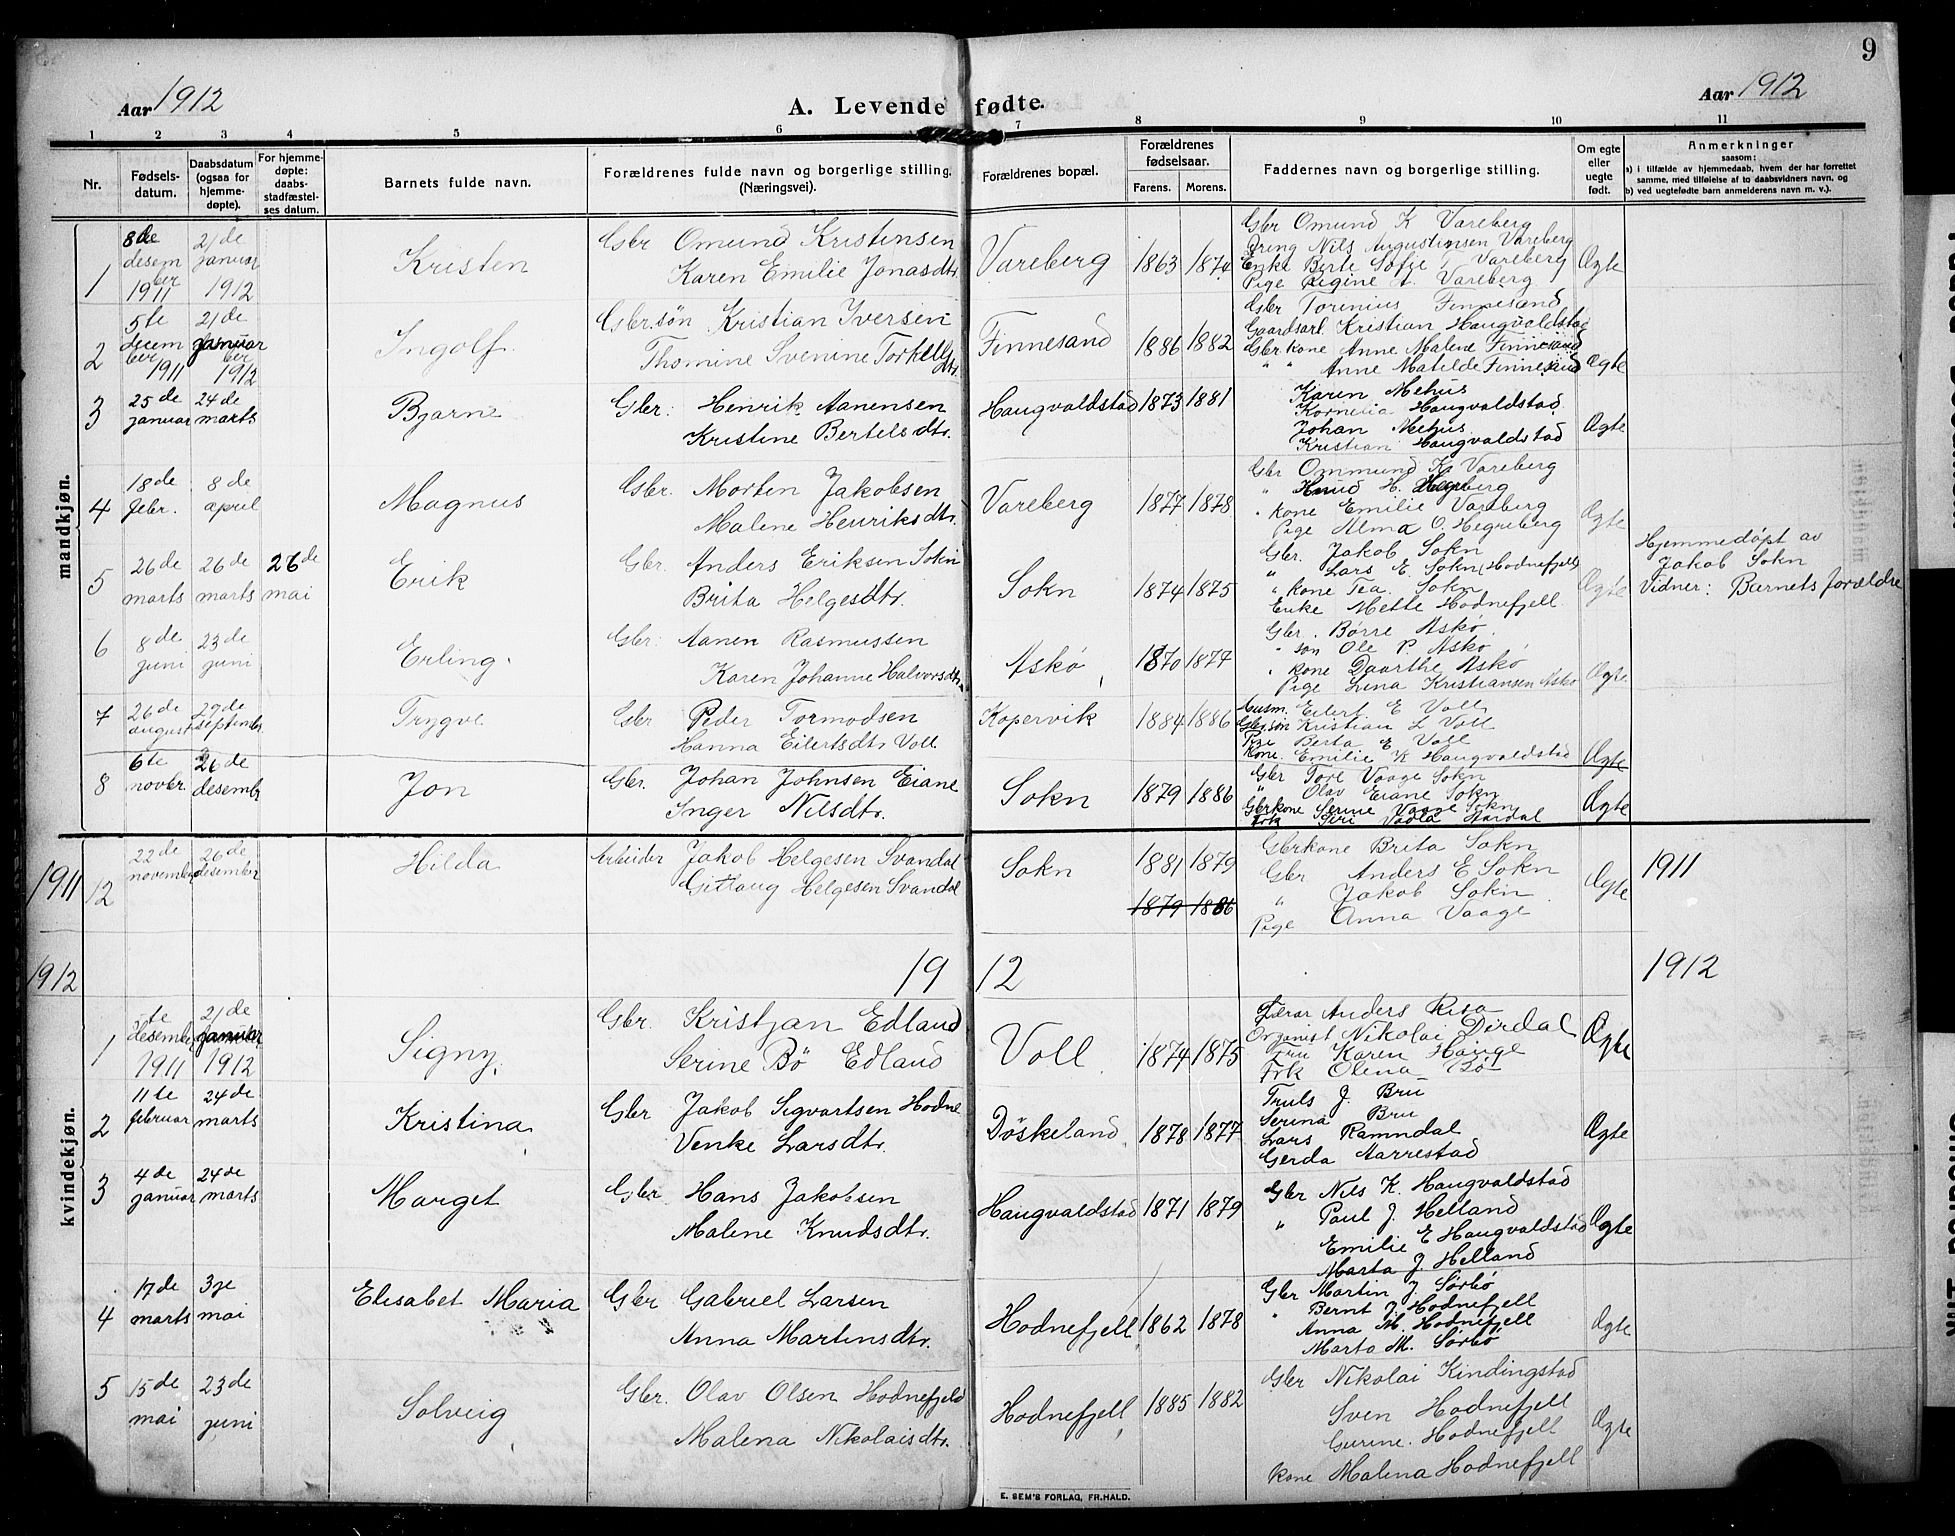 9
Aar 1912
A. Levende fødte.
Aar 1912
1 2 3 4 5 6 7 8 9 10 11
Nr.
Fødsels-
datum.
Daabsdatum
(ogsaa for
hjemme-
døpte).
For hjemme-
døpte:
daabs-
stadfæstel-
ses datum.
Barnets fulde navn.
Forældrenes fulde navn og borgerlige stilling.
(Næringsvei).
Forældrenes bopæl.
Forældrenes
fødselsaar.
Farens. Morens.
Faddernes navn og borgerlige stilling.
Om egte
eller
uegte
født.
Anmerkninger
saasom:
a) i tilfælde av hjemmedaab, hvem der har forrettet
samme, med tilføielse af to daabsvidners navn, og
b) ved uegtefødte barn anmelderens navn m. v.).
mandkjøn.
1
8de
desem
ber
1911
21de
januar
1912
Kristen
Gbr Omund Kristensen
Karen Emilie Jonasdtr
Vareberg
1863 1874
Gbr Omund K Vareberg
Dreng Nils Augustinsen Vareberg
Enke Berte Sofie Vareberg
Pige Regine A. Vareberg
Ægte
2
5te
decem
ber
1911
21de
januar
1912
Ingolf
Gbr.søn Kristian Iversen
Thomine Svenine Torkells
dtr.
Finnesand
1886 1882
Gbr Torenius Finnesand
Gaardsarb. Kristian Haugvaldstad
Gbr kone Anne Malene Finnesand
" " Anne Matilde Finnesand
Ægte
3
25de
januar
24de
marts
Bjarne
Gbr. Henrik Aanensen
Kristine Bertelsdtr.
Haugvaldstad
1873 1881
Karen Mehus
Kornelia Haugvaldstad
Johan Mehus
Kristian Haugvaldstad
Ægte
4
18de
febr.
8de
april
Magnus
Gbr. Morten Jakobsen
Malene Henriksdtr.
Vareberg
1877 1878
Gbr Ommund K. Vareberg
" Knud H.
" kone Emilie Vareberg
Pige Alma O. Hegreberg
Ægte
5
26de
marts
26de
marts
26de
mai
Erik
Gbr. Anders Eriksen Sokn
Brita Helgesdtr.
Sokn
1874 1875
Gbr. Jakob Sokn
" Lars E. Sokn (Hodnefjell)
" kone Tea Sokn
Enke Mette Hodnefjell
Ægte
Hjemmedøpt av
Jakob Sokn
Vidner: Barnets forældre
6
8de
juni
23de
juni
Erling
Gbr. Aanen Rasmussen
Karen Johanne Halvorsdtr.
Askø
1870 1877
Gbr. Børre Askø
" søn Ole P. Askø
" kone Daarthe Askø
Pige Lina Kristiansen Askø
Ægte
7
26de
august
29de
september
Trygve
Gbr Peder Tormodsen
Hanna Eilertsdtr Voll
Kopervik
1884 1886
Husm. Eilert E Voll
Gbr.søn Kristian L Voll
Pige Berta E Voll
Kone Emilie K Haugvaldstad
Ægte
8
6te
novbr.
26de
desembr
Jon
Gbr. Johan Johnsen Eiane
Inger Nilsdtr.
Sokn
1879 1886
Gbr Tore Vaage Sokn
" Olav Eiane Sokn
Gbrkone Serine Vaage Sokn
Frk Siri Vadla Aardal
Ægte
1911
12
22de
november
26de
desember
Hilda
Arbeider Jakob Helgesen Svandal
Gitlaug Helgesen Svandal
Sokn
1881 1879
1879 1886
Gbrkone Brita Sokn
Gbr Anders E Sokn
" Jakob Sokn
Pige Anna Vaage
Ægte
1911
1912
19 12
1912
kvindekjøn.
1
te
desember
1911
21de
januar
1912
Signy
Gbr. Kristjan Edland
Serine Bø Edland
Voll
1874 1875
Lærar Anders Rita
Organist Nikolai Dirdal
Fru Karen Hauge
Frk Olena Bø
Ægte
2
11te
februar
24de
marts
Kristina
Gbr Jakob Sigvartsen Hodne
Venke Larsdtr.
Døskeland
1878 1877
Truls J. Bru
Serina Bru
Lars Ramndal
Gerda Aarrestad
Ægte
3
4de
januar
24de
marts
Marget
Gbr Hans Jakobsen
Malene Knudsdtr.
Haugvaldstad
1871 1879
Gbr Nils K. Haugvaldstad
" Paul J. Helland
Emilie E Haugvaldstad
Marta J. Helland
Ægte
4
17de
marts
3je
mai
Elisabet Maria
Gbr Gabriel Larsen
Anna Martinsdtr.
Hodnefjell
1862 1878
Gbr Martin J. Sørbø
" Bernt J. Hodnefjell
Anna M. Hodnefjell
Marta M. Sørbø
Ægte
5
15de
mai
23de
juni
Solveig
Gbr. Olav Olsen Hodnefjeld
Malena Nikolaisdtr.
Hodnefjell
1885 1882
Gbr Nikolai Kindingstad
Sven Hodnefjell
Gurine Hodnefjell
Kone Malena Hodnefjell
Ægte
E. SEM'S FORLAG, FR.HALD.